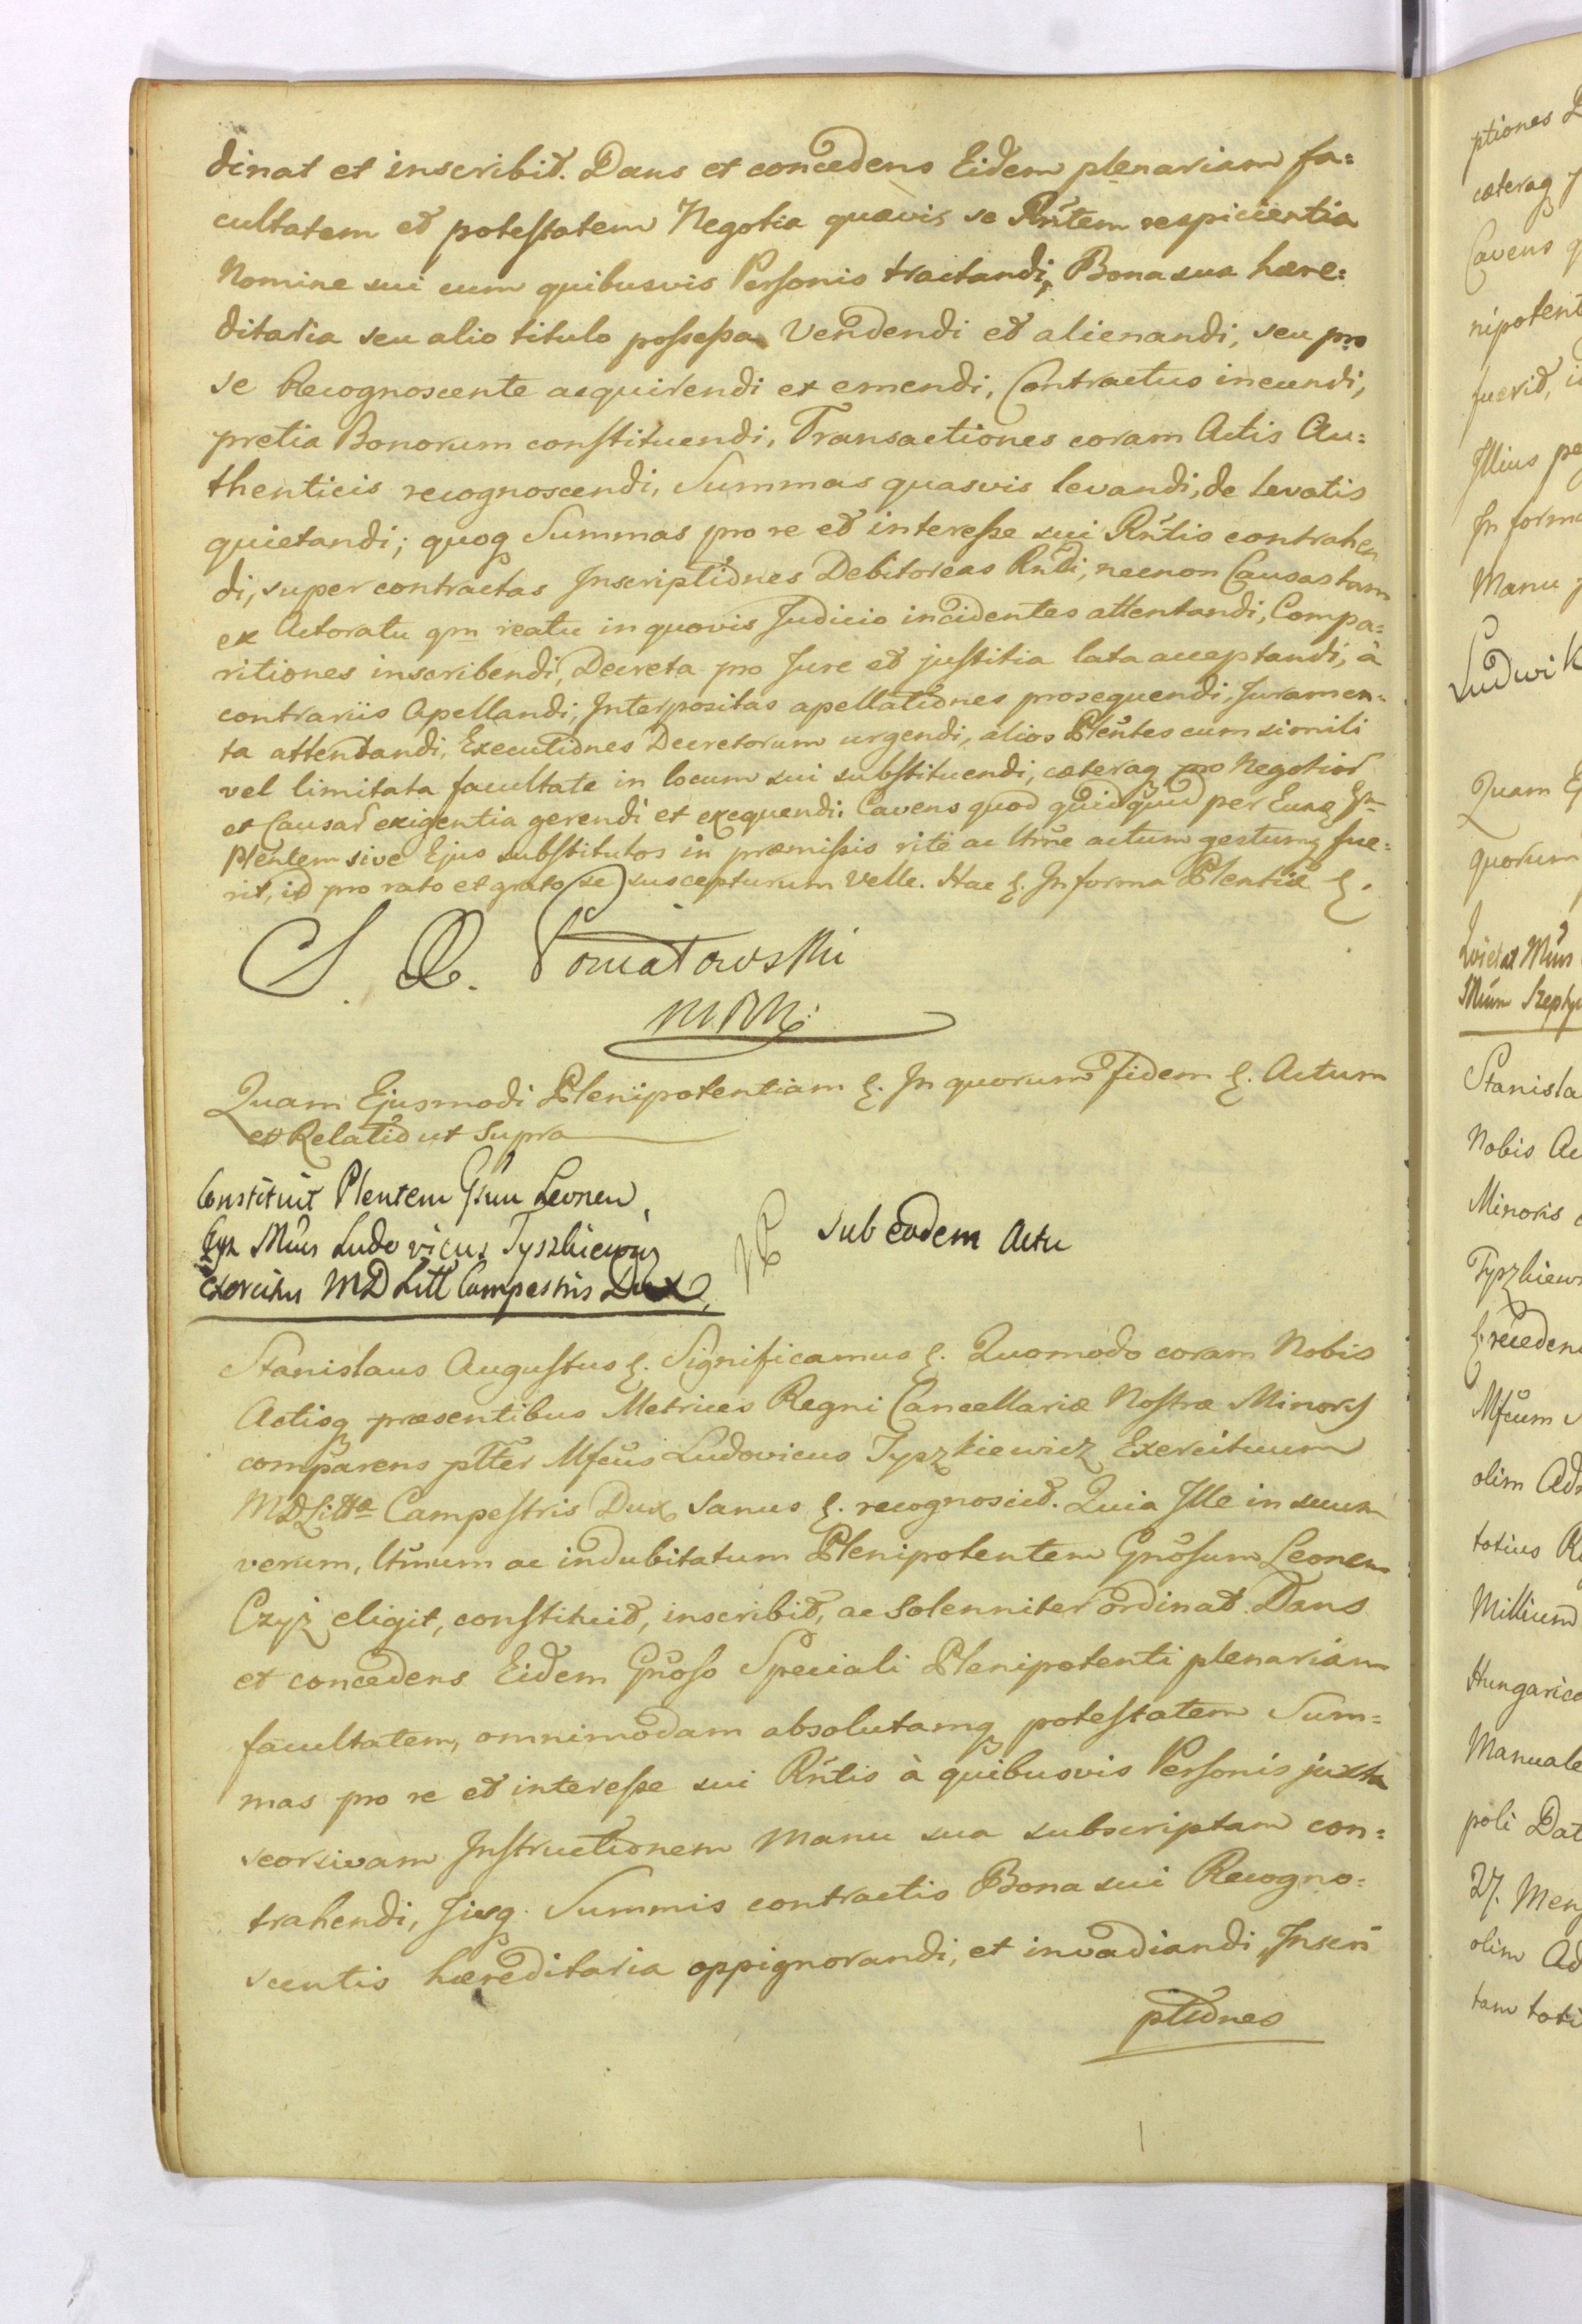 dinat et inscribit. Dans et concedens Eidem plenariam fa=
cultatem et potestatem Negotia quævis se Rñtem respicientia
Nomine sui cum quibusvis Personis tractandi, Bona sua hære:
ditaria seu alio titulo possessa Vendendi et alienandi, seu pro
se Recognoscente acquirendi et emendi, Contractus ineundi,
pretia Bonorum constituendi, Transactiones coram Actis Au=
thenticis recognoscendi, Summas quasvis levandi, de levatis
quietandi; quoq Summas pro re et interesse sui Rñtis contrahen
di, super contractas Inscriptiones Debitoreas Rndi, necnon Causas tam
ex Actoratu qm reatu in quovis Judicio incidentes attentandi, Compa=
ritiones inscribendi, Decreta pro Jure et justitia lata acceptandi, à
contrariis Apellandi, Interpositas apellationes prosequendi, Juramen=
ta attendandi, Executiones Decretorum urgendi, alios Plentes cum simili
vel limitata facultate in locum sui substituendi, cæteraq pro Negotior
et Causar exigentia gerendi et exequendi. Cavens quod quidquid per Eunq
Plentem sive Ejus substitutos in præmissis ritè ac ltme actum gestumq fue=
rit, id pro rato et grato se suscepturum Velle. Hac &. In forma Plentiæ &.
S. A. Poniatowski
mpm:
Quam Ejusmodi Plenipotentiam &. In quorum fidem &. Actum
et Relatio ut supra
Constituit Plentem Gsum Leonem
Czyz Mcus Ludovicus Tyszkiewicz
Exercitus MD Litt Campestris Dux,
Sub eodem Actu
Stanislaus Augustus &. Significamus &. Quomodo coram Nobis
Actisq præsentibus Metrices Regni Cancellariæ Nostræ Minoris
comparens plter Mfcus Ludovicus Tyszkiewicz Exercituum
MDLittæ Campestris Dux Sanus &. recognoscit. Quia Ille in suum
verum, ltmum ac indubitatum Plenipotentem Gnosum Leonem
Czyż eligit, constituit, inscribit, ac Solenniter ordinat. Dans
et concedens Eidem Gnoso Speciali Plenipotenti plenariam
facultatem, omnimodam absolutamq potestatem Sum=
mas pro re et interesse sui Rñtis à quibusvis Personis juxta
seorsivam Instructionem Manu sua subscriptam con=
trahendi, Jisq Summis contractis Bona sui Recogno=
scentis hæreditaria oppignorandi, et invadiandi, Inscri
ptiones
ptiones
cæteraq
Cavens
nipotent
fuerit,
Illius
In forma
Manu
Ludwik
Quam
quorum
Stanisla
Nobis
Minoris
Tyszkiew
Mfcum
olim
totius
Millium
Hungarico
Manuale
poli Dat
27. Mens
olim Ad
tam toti